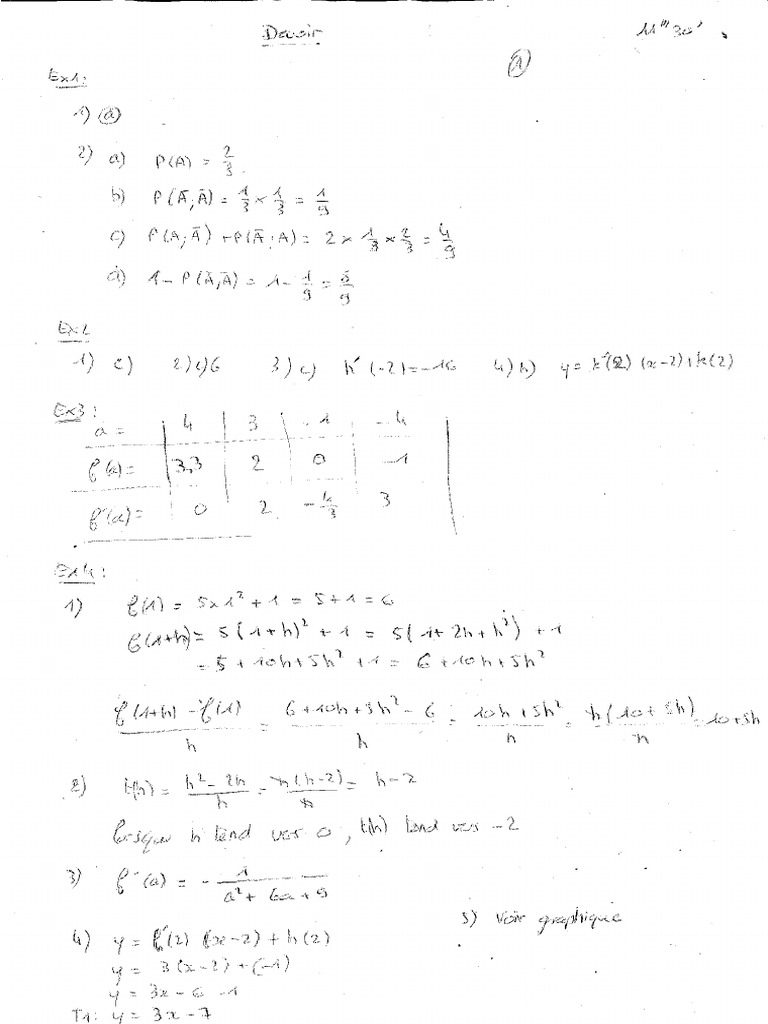 Devoir
11"'30'
①
Ex1:
1) ⓐ
2) a) P(A) = 2/3
b) P(Ā;Ā) = 1/3 × 1/3 = 1/9
c) P(A;Ā) + P(Ā;A) = 2 × 1/3 × 2/3 = 4/9
d) 1 - P(Ā;Ā) = 1 - 1/9 = 5/9
Ex2
1) c) 2) c) 6 3) c) h'(-2) = -16 4) b) y = k'(2) (x-2) + k(2)
Ex3:
a = 4 3 -1 -4
f(a) = 3,3 2 0 -1
f'(a) = 0 2 -4/3 3
Ex4:
1) f(1) = 5×1² + 1 = 5+1 = 6
f(1+h) = 5(1+h)² + 1 = 5(1+2h+h²) + 1
= 5 + 10h + 5h² + 1 = 6 + 10h + 5h²
(f(1+h) - f(1))/h = (6+10h+5h²-6)/h = (10h+5h²)/h = h(10+5h)/h = 10+5h
2) t(h) = (h²-2h)/h = h(h-2)/h = h-2
lorsque h tend vers 0, t(h) tend vers -2
3) f'(a) = - 1/(a² + 6a + 9)
5) Voir graphique
4) y = f'(2) (x-2) + h(2)
y = 3(x-2) + (-1)
y = 3x - 6 - 1
T1: y = 3x - 7